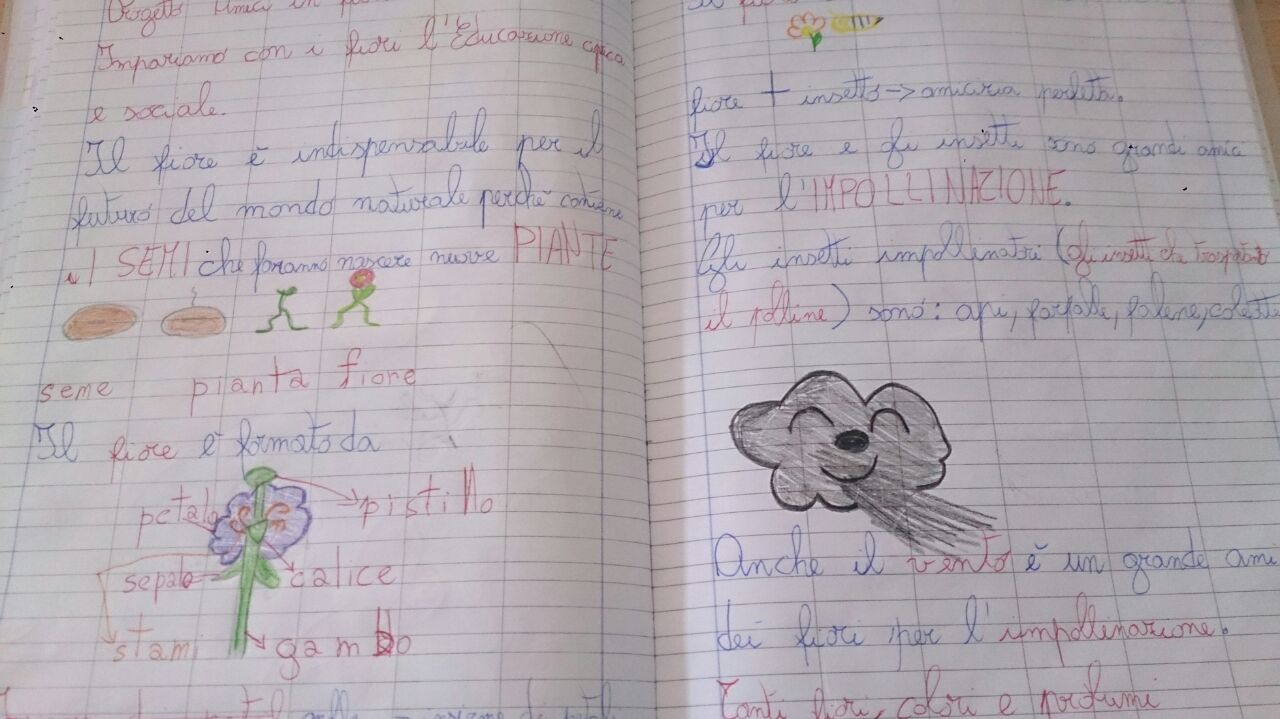 Progetto Amici in
Impariamo con i fiori l'Educazione civica
e sociale.
Il fiore è indispensabile per il
futuro del mondo naturale perchè contiene
I SEMI che faranno nascere nuove PIANTE
seme pianta fiore
Il fiore è formato da
petalo pistillo
sepalo calice
stami gambo
fiore + insetto -> amicizia perfetta.
Il fiore e gli insetti sono grandi amici
per l'IMPOLLINAZIONE.
Gli insetti impollinatori (gli insetti che trasportano
il polline) sono: api, farfalle, falene, coleotteri
Anche il vento è un grande ami
dei fiori per l'impollinazione.
Tanti fiori, colori e profumi